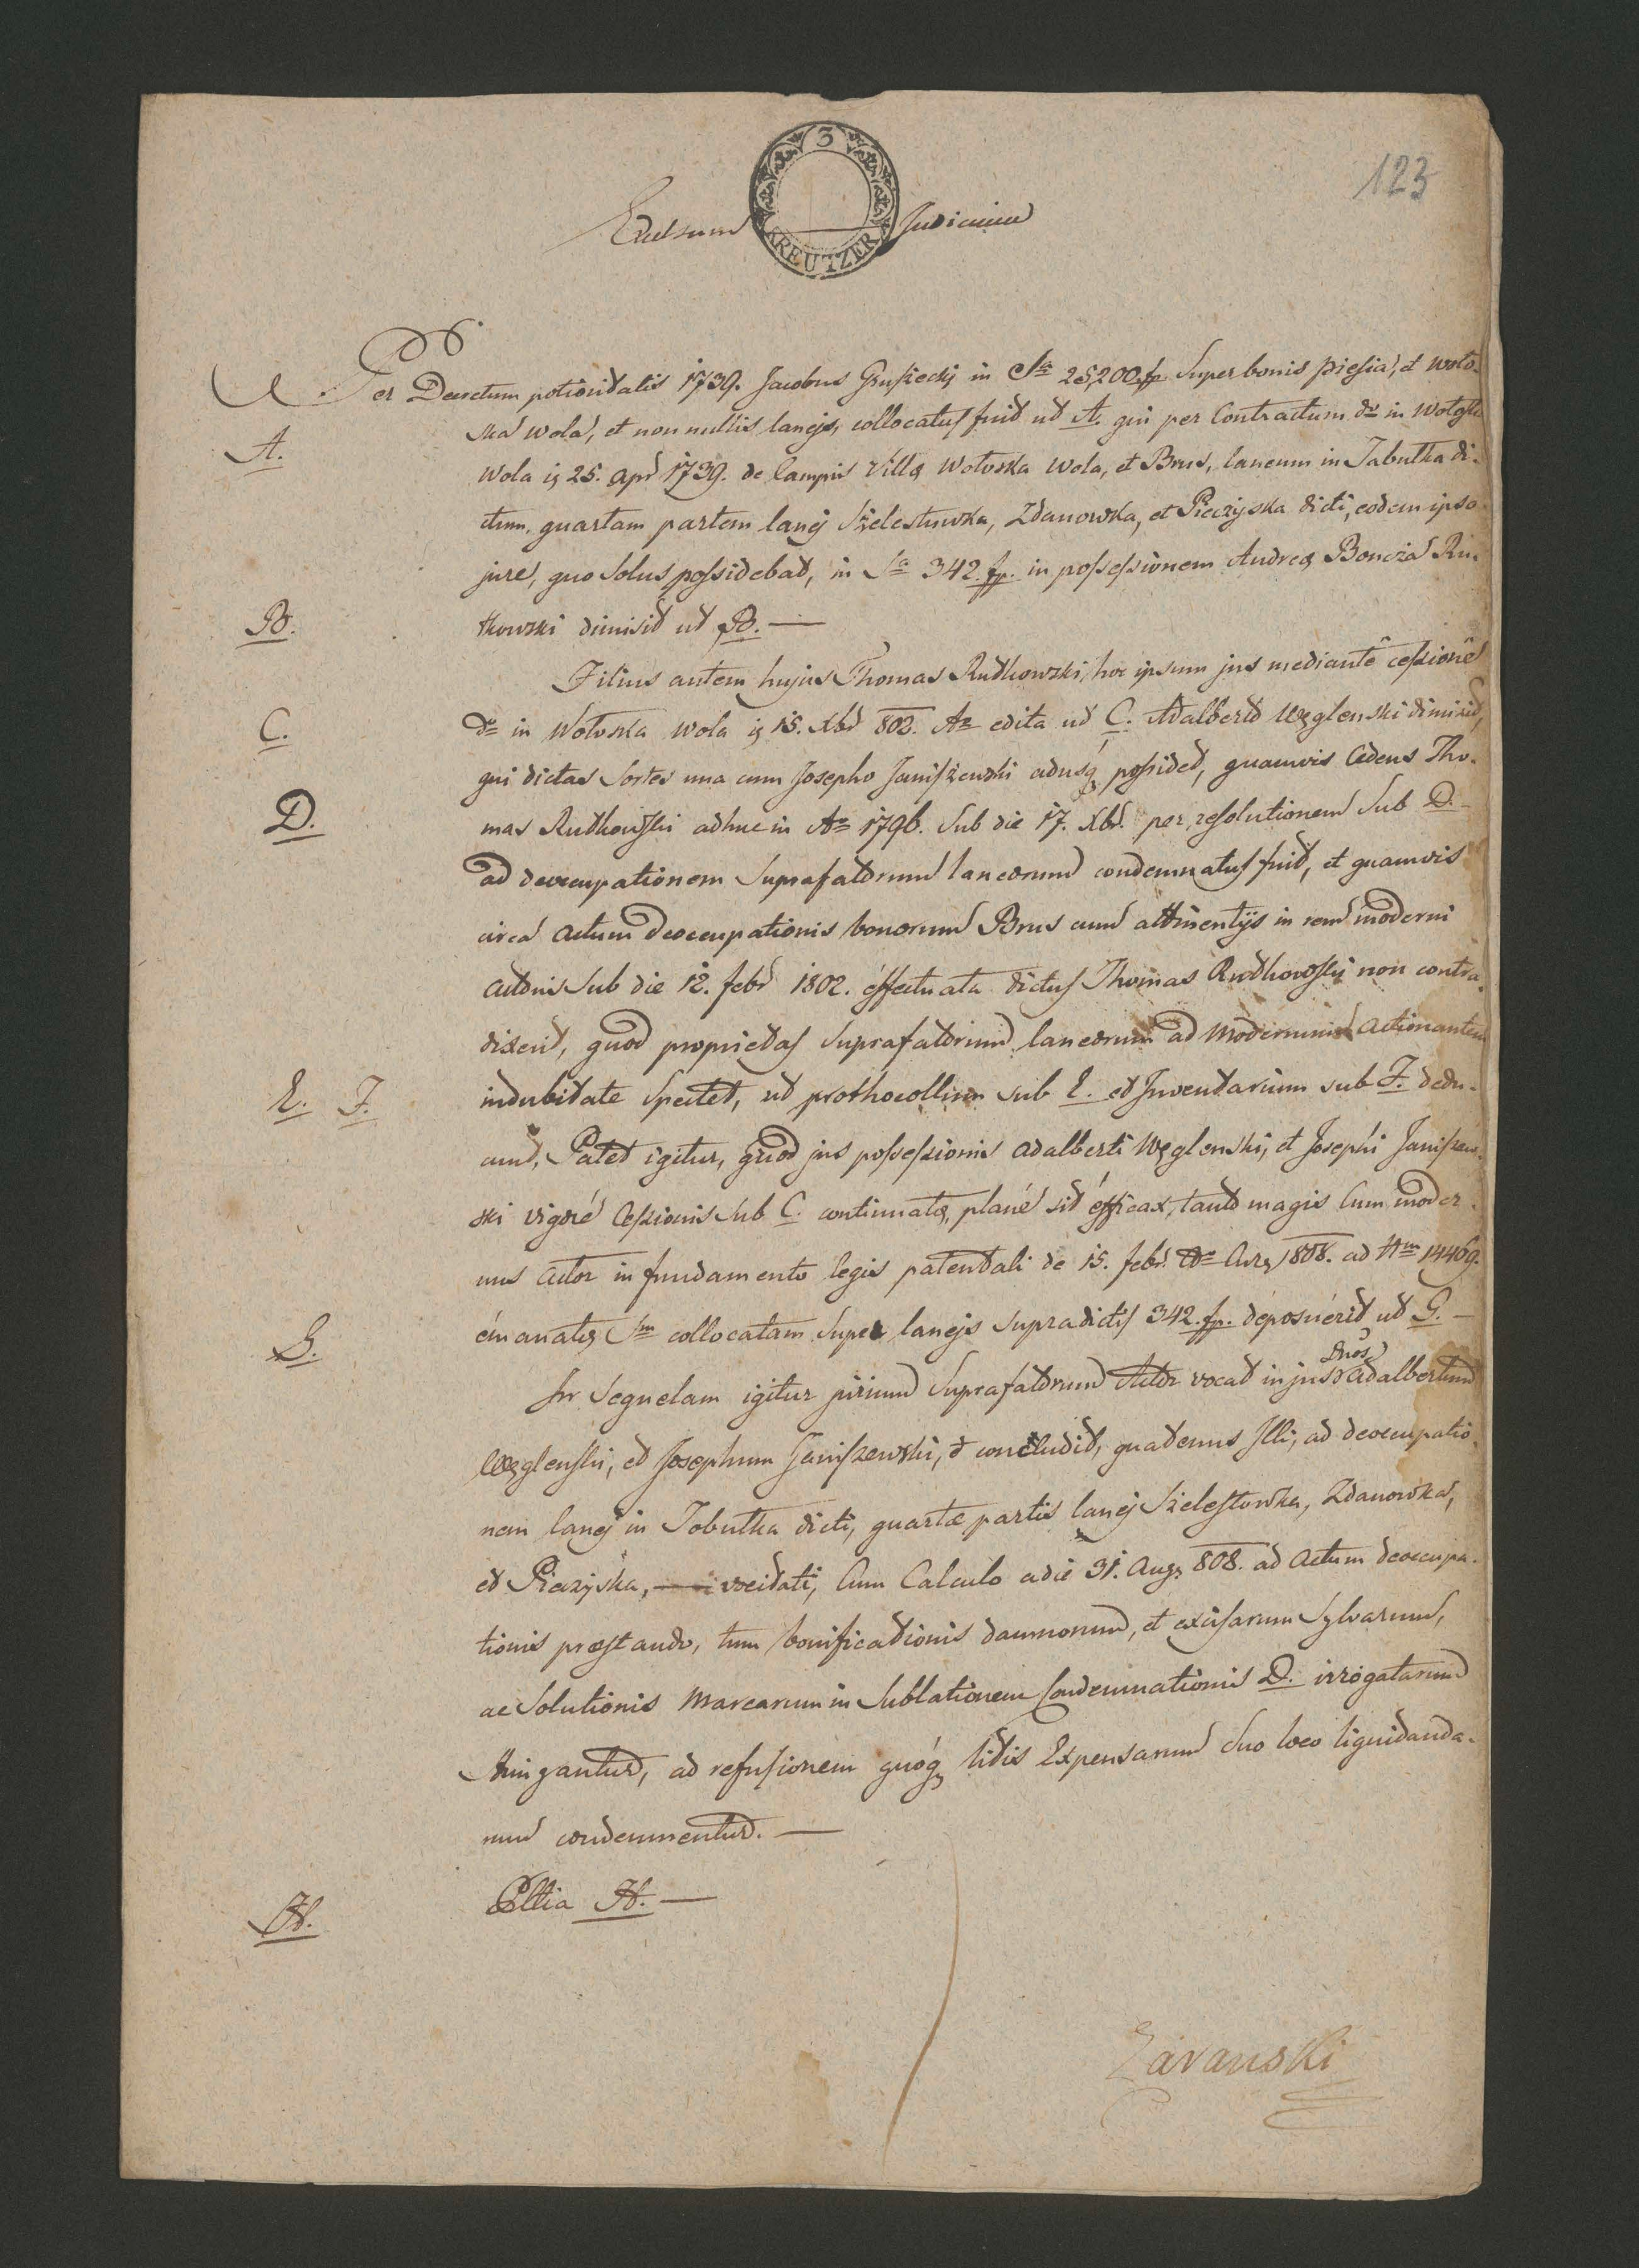 123
3
KREUTZER
Excelsum Judicium
Per Decretum potioritatis 1739. Jacobus Gruszecky in Sa 25,200 fp Super bonis Piesia, et Woto-
A.
ska Wola, et non nullis lanejs, collocatus fuit ut A. qui per Contractum dto in Wotoska
Wola ij 25. Apr 1739. de Campis Villæ Wotoska Wola, et Brus, laneum in Jabutka di-
ctum, quartam partem lanej Szelestuwka, Zdanowka, et Pieczyska dicti, eodem ipso
jure, quo Solus possidebat, in Sa 342. fp. in possessionem Andreæ Boncza Rut-
B.
kowski dimisit ut B. —
Filius autem hujus Thomas Rutkowski, hoc ipsum jus mediante cessione
C.
dto in Wotoska Wola ij 15. Xbr 802. Ao edita ut C. Adalberto Węglenski dimisit,
qui dictas Sortes una cum Josepho Janiszewski adusq possidet, quamvis Cedens Tho-
D.
mas Rutkowski adhuc in Ao 1796. Sub die 17. Xbr. per resolutionem Sub D.
ad deoccupationem Suprafatorum laneorum condemnatus fuit, et quamvis
circa actum deoccupationis bonorum Brus cum attinentijs in rem moderni
actoris Sub die 12. febr 1802. effectuata dictus Thomas Rutkowski non contra-
dixerit, quod proprietas Suprafatorum laneorum ad modernum Actionantem
E. F.
indubitate Spectet, ut prothocollum sub E. et Inventarium sub F. docu-
unt, Patet igitur, quod jus possessionis Adalberti Węglenski, et Josephi Janiszew-
ski vigore Cessionis Sub C. continuatæ, plane sit efficax, tanto magis Cum moder-
nus Actor in fundamento legis patentali de 15. febr. 1808. ad Nm 14469.
G.
emanatæ Sm collocatam Super lanejs Supradictis 342. fp. deposuerit ut G. —
In Sequelam igitur jurium Suprafatorum Actor vocat in jus Dnos Adalbertum
Węglenski, et Josephum Janiszewski, et concludit, quatenus Illi, ad deoccupatio-
nem lanej in Jobutka dicti, quartæ partis lanej Szelestowka, Zdanowka,
et Pieczyska, vocitati, Cum Calculo a die 31. Aug 808. ad Actum deoccupa-
tionis præstando, tum bonificationis damnorum, et excisarum Sylvarum,
ac Solutionis Marcarum in Sublationem Condemnationis D. irrogatarum
Stringantur, ad refusionem quoq litis Expensarum Suo loco liquidanda-
rum condemnentur. —
H.
Pltia H. —
Zavanski